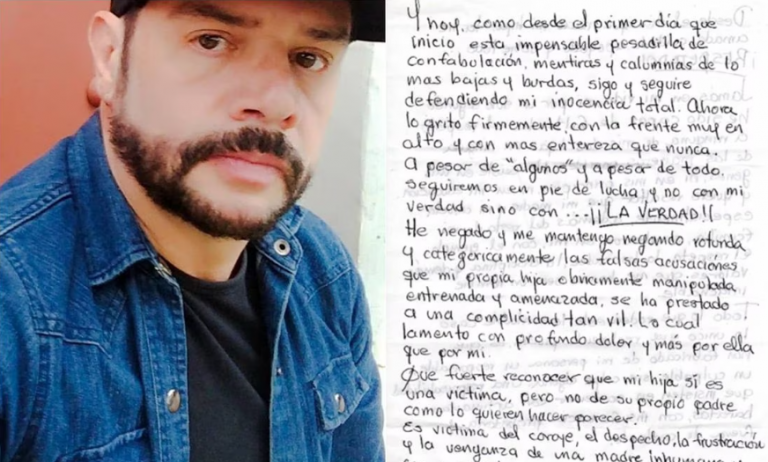 Y hoy, como desde el primer día que
inicio esta impensable pesadilla de
confabulación, mentiras y calumnias de lo
mas bajas y burdas, sigo y seguire
defendiendo mi inocencia total. Ahora
lo grito firmemente, con la frente muy en
alto y con mas entereza que nunca.
A pesar de "algunos" y a pesar de todo,
seguiremos en pie de lucha y no con mi
verdad sino con...¡¡LA VERDAD!!
He negado y me mantengo negando rotunda
y categoricamente las falsas acusaciones
que mi propia hija obviamente manipulada,
entrenada y amenazada, se ha prestado
a una complicidad tan vil! Lo cual
lamento con profundo dolor y más por ella
que por mi.
Que fuerte reconocer que mi hija si es
una victima, pero no de su propio padre
como lo quieren hacer parecer.
Es victima del coraje, el despecho, la frustración
y la venganza de una madre inhumana